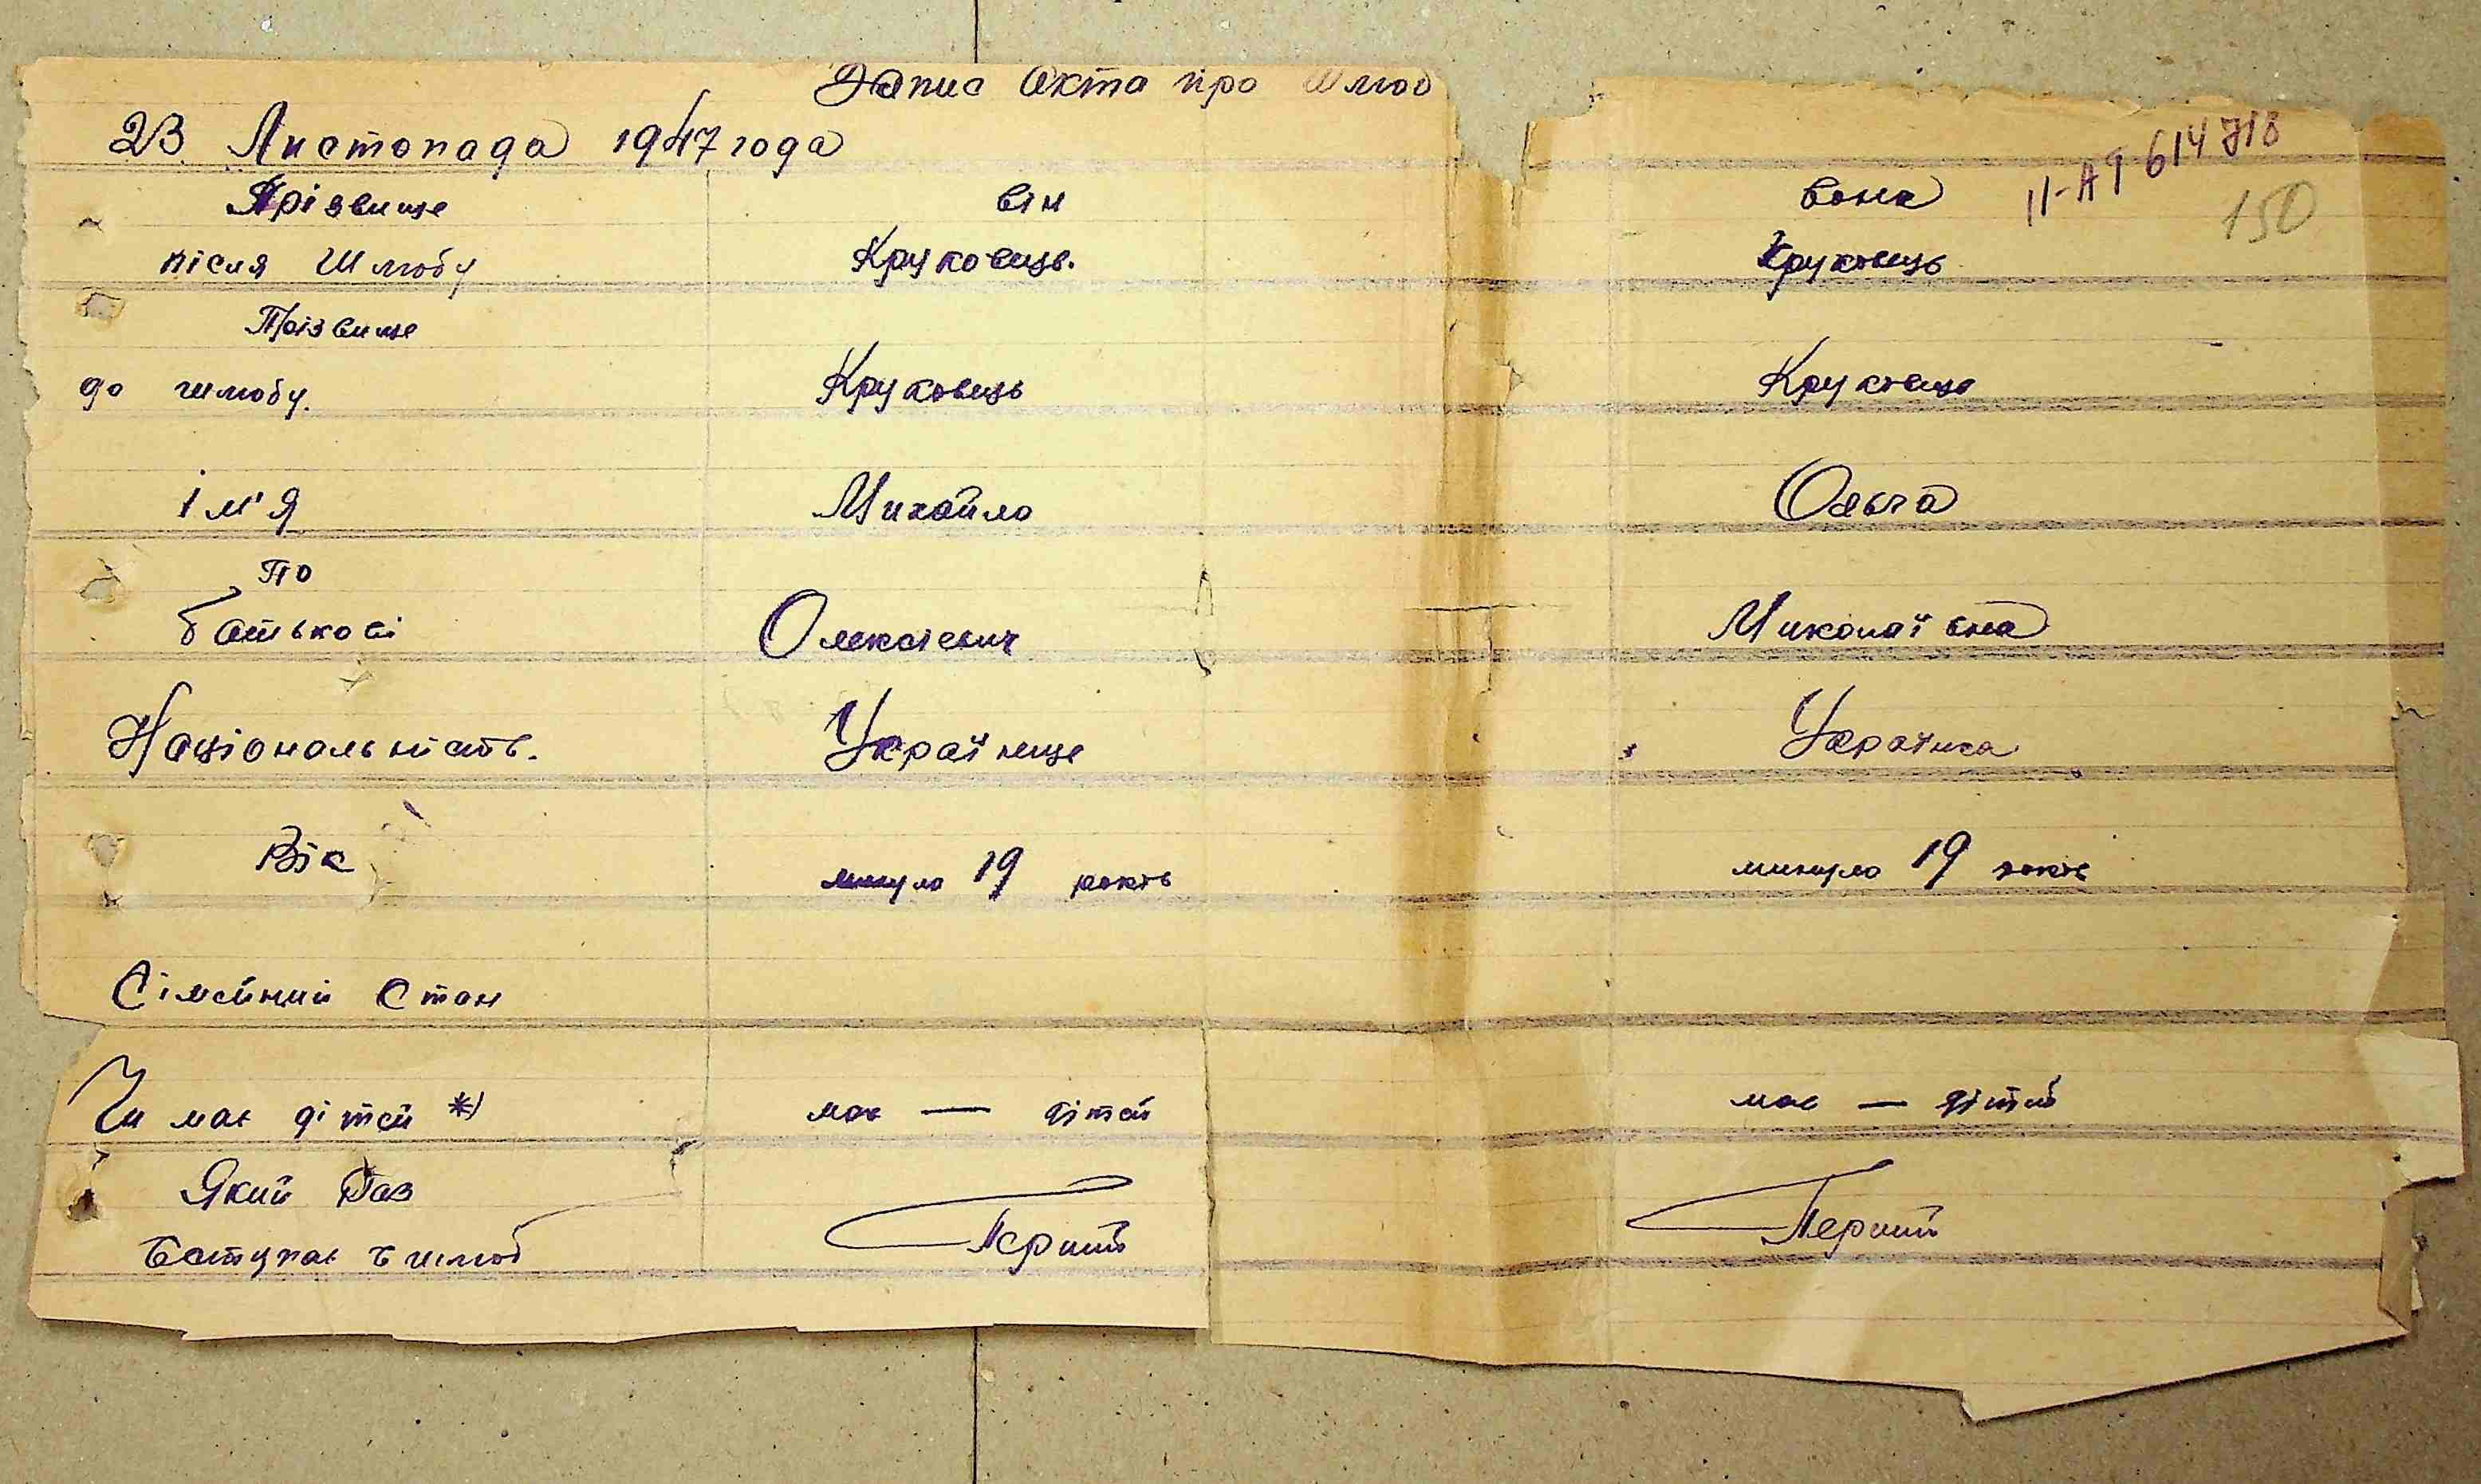 Запис Акта про Шлюб
23 Листопада 1947 года
Прізвище він вона II-АЯ 614718
150
після Шлюбу Круковець. Круковець
Прізвище
до шлюбу. Круковець Круковець
ім'я Михайло Ольга
По
батькові Олексієвич Миколаївна
Національність. Українець Українка
Вік минуло 19 років минуло 19 років
Сімейний Стан
Чи має дітей *) має — дітей має — дітей
Який Раз
вступає в шлюб Перший Перший